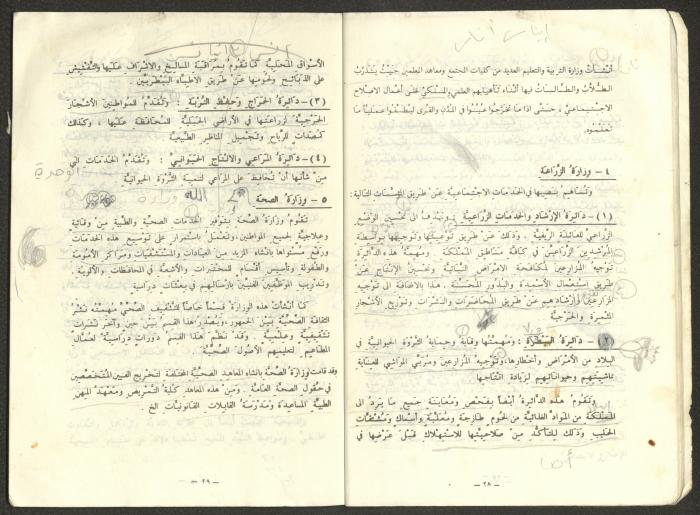 أنشأت وزارة التربية والتعليم العديد من كليات المجتمع ومعاهد المعلمين حيث يتدرب
الطلاب والطالبات فيها أثناء تأهيلهم العلمي والمسلكي على أعمال الاصلاح
الاجتماعي، حتى اذا ما تخرجوا عينوا في المدن والقرى ليطبقوا عملياً ما
تعلموه.
٤ - وزارة الزراعة
وتساهم بنصيبها في الخدمات الاجتماعية عن طريق المؤسسات التالية:
(١) - دائرة الإرشاد والخدمات الزراعية: وتهدف الى تحسين الوضع
الزراعي للعائلة الريفية. وذلك عن طريق توعيتها وتوجيهها بواسطة
المرشدين الزراعيين في كافة مناطق المملكة. ومهمة هذه الدائرة
توجيه المزارعين لمكافحة الامراض النباتية وتحسين الإنتاج عن
طريق استعمال الأسمدة والبذور المحسنة. هذا بالاضافة الى توعية
المزارعين وإرشادهم عن طريق المحاضرات والنشرات وتوزيع الأشجار
المثمرة والحرجية
(٢) - دائرة البيطرة: ومهمتها وقاية وحماية الثروة الحيوانية في
البلاد من الأمراض وأخطارها، وتوجيه المزارعين ومربي المواشي للعناية
بماشيتهم وحيواناتهم لزيادة انتاجها
وتقوم هذه الدائرة أيضاً بفحص ومعاينة جميع ما يرد الى
المملكة من المواد الغذائية من لحوم طازجة ومعلبة وأسماك ومشتقات
الحليب وذلك للتأكد من صلاحيتها للاستهلاك قبل عرضها في
- ٢٨ -
الأسواق المحلية كما تقوم بمراقبة المسالخ والاشراف عليها والتفتيش
على الذبائح ولحومها عن طريق الاطباء البيطريين.
(٣) - دائرة الحراج وحفظ التربة: وتقدم للمواطنين الأشجار
الحرجية لزراعتها في الأراضي الجبلية للمحافظة عليها، وكذلك
كمصدات للرياح وتجميل المناظر الطبيعية
(٤) - دائرة المراعي والانتاج الحيواني: وتقدم الخدمات التي
من شأنها أن تحافظ على المراعي لتنمية الثروة الحيوانية
الوحدة
الله
٥ - وزارة الصحة
تقوم وزارة الصحة بتوفير الخدمات الصحية والطبية من وقائية
وعلاجية لجميع المواطنين، وتعمل باستمرار على توسيع هذه الخدمات
ورفع مستواها بانشاء المزيد من العيادات والمستشفيات ومراكز الأمومة
والطفولة وتأسيس أقسام للمختبرات والأشعة في المحافظات والألوية
وتدريب الموظفين الفنيين بارسالهم في بعثات دراسية
كما أنشأت هذه الوزارة قسماً خاصاً للتثقيف الصحي مهمته نشر
الثقافة الصحية بين الجمهور، ويصدر هذا القسم بين حين وآخر نشرات
تثقيفية وعلمية. وقد نظم هذا القسم دورات دراسية لعمال
المطاعم لتعليمهم الأصول الصحية.
وقد قامت وزارة الصحة بانشاء المعاهد الصحية المختلفة لتخريج الفنيين المتخصصين
في حقول الصحة العامة. ومن هذه المعاهد كلية التمريض ومعهد المهن
الطبية المساعدة ومدرسة القابلات القانونيات الخ.
- ٢٩ -